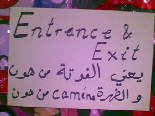 Entrance &
Exit
يعني الفوتة من هون
و الظهرة كمان من هون